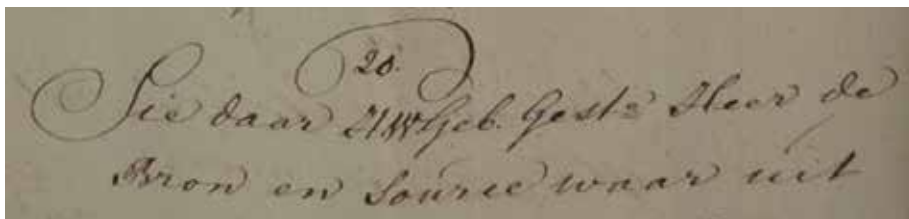 20.
Sie daar UWGeb. Gestr Heer de
Bron en Source waar uit